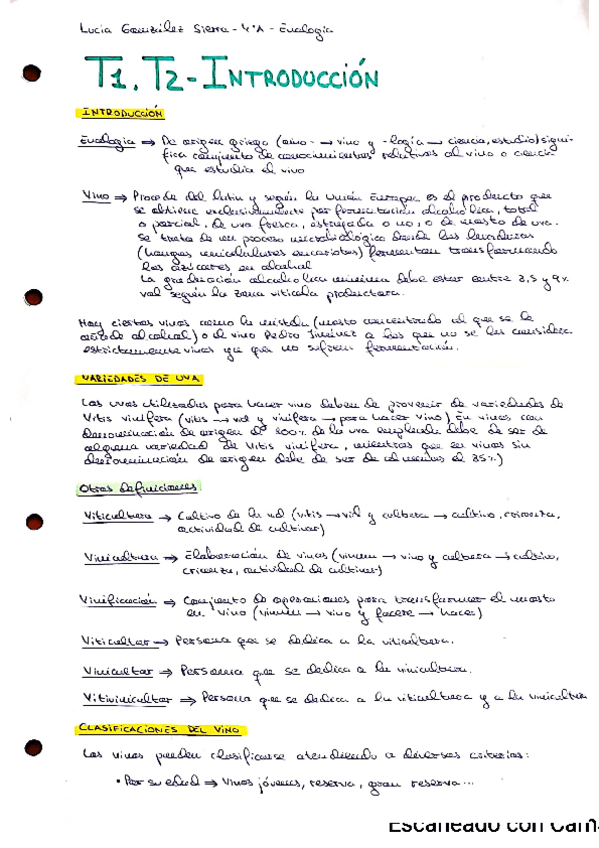 Lucía González Sierra - 4ºA - Enología
T1. T2 - INTRODUCCIÓN
INTRODUCCIÓN
Enología ⇒ De origen griego (oino- → vino y -logía → ciencia, estudio) signi-
fica conjunto de conocimientos relativos al vino o ciencia
que estudia el vino
Vino ⇒ Procede del latín y según la Unión Europea es el producto que
se obtiene exclusivamente por fermentación alcohólica, total
o parcial, de uva fresca, estrujada o no, o de mosto de uva.
Se trata de un proceso microbiológico donde las levaduras
(hongos unicelulares eucariotas) fermentan transformando
los azúcares en alcohol
La graduación alcohólica mínima debe estar entre 8,5 y 9%
vol según la zona vitícola productora.
Hay ciertos vinos como la mistela (mosto concentrado al que se le
añade alcohol) o el vino Pedro Jiménez a los que no se les considera
estrictamente vinos ya que no sufren fermentación.
VARIEDADES DE UVA
Las uvas utilizadas para hacer vino deben de provenir de variedades de
Vitis vinífera (vitis → vid y vinífera → para hacer vino) En vinos con
denominación de origen el 100% de la uva empleada debe de ser de
alguna variedad de Vitis vinífera, mientras que en vinos sin
denominación de origen debe de ser de al menos el 85%)
Otras definiciones
Viticultura → Cultivo de la vid (vitis → vid y cultura → cultivo, crianza,
actividad de cultivar)
Vinicultura → Elaboración de vinos (vinum → vino y cultura → cultivo,
crianza, actividad de cultivar)
Vinificación → Conjunto de operaciones para transformar el mosto
en vino (vinum → vino y facere → hacer)
Viticultor → Persona que se dedica a la viticultura.
Vinicultor → Persona que se dedica a la vinicultura.
Vitivinicultor → Persona que se dedica a la viticultura y a la vinicultura
CLASIFICACIONES DEL VINO
Los vinos pueden clasificarse atendiendo a diversos criterios:
• Por su edad ⇒ Vinos jóvenes, reserva, gran reserva...
Escaneado con Cam